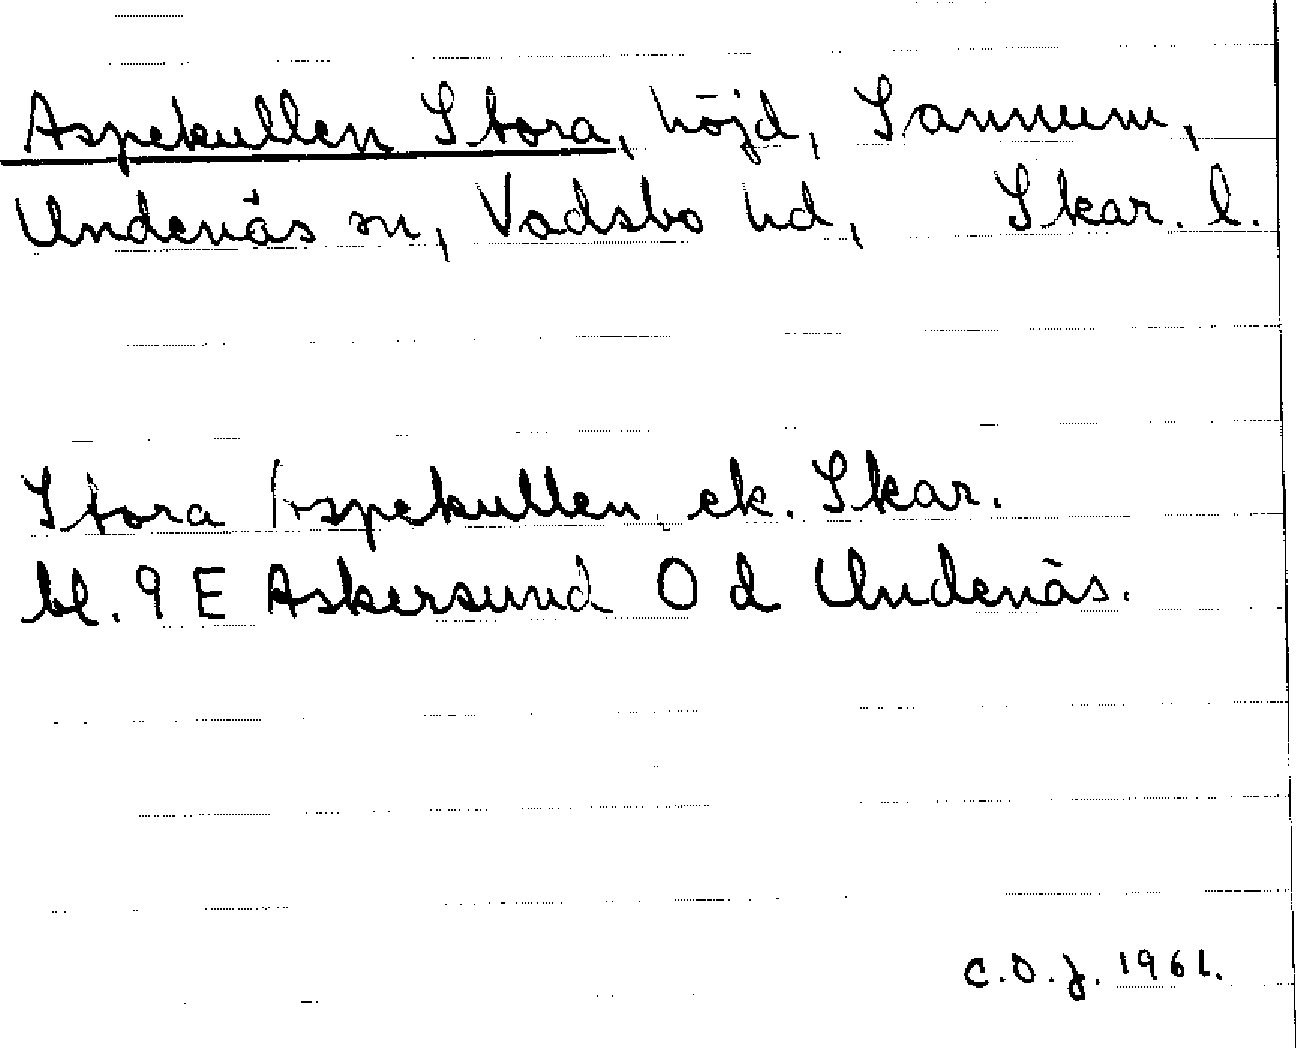 Aspekullen Stora, höjd, Sannum,
Undenäs sn, Vadsbo hd, Skar. l.
Stora Aspekullen ek. Skar.
bl. 9 E Askersund O d Undenäs.
C.O.J. 1961.